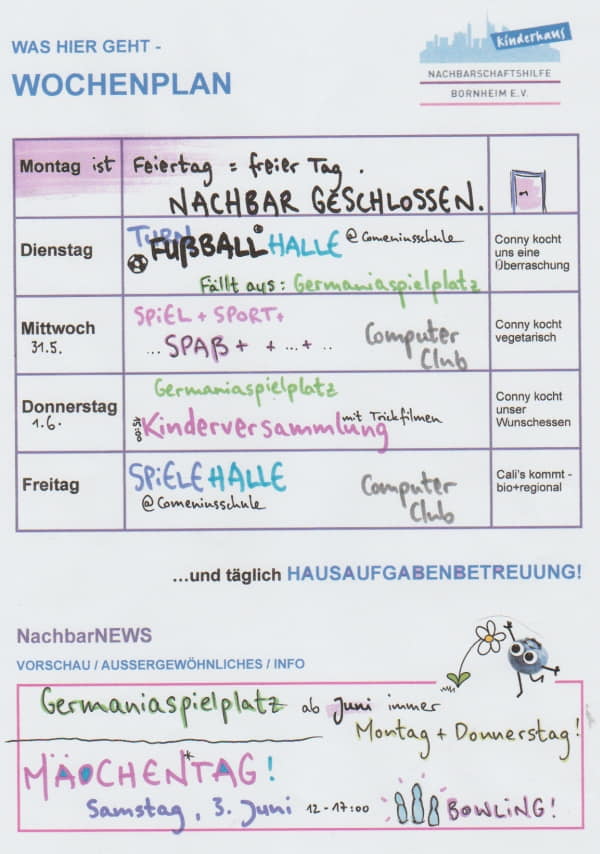 WAS HIER GEHT -
WOCHENPLAN
Kinderhaus
NACHBARSCHAFTSHILFE
BORNHEIM E.V.
Montag ist
Feiertag = freier Tag.
NACHBAR GESCHLOSSEN.
Dienstag
TURN
FUßBALL HALLE @Comeniusschule
Fällt aus: Germaniaspielplatz
Conny kocht
uns eine
Überraschung
Mittwoch
31.5.
SPIEL + SPORT +
... SPAß + + ... + ..
Computer
Club
Conny kocht
vegetarisch
Donnerstag
1.6.
Germaniaspielplatz
Kinderversammlung mit Trickfilmen
Conny kocht
unser
Wunschessen
Freitag
SPIELEHALLE
@Comeniusschule
Computer
Club
Cali's kommt -
bio+regional
...und täglich HAUSAUFGABENBETREUUNG!
NachbarNEWS
VORSCHAU / AUSSERGEWÖHNLICHES / INFO
Germaniaspielplatz ab Juni immer
Montag + Donnerstag!
MÄDCHEN*TAG!
Samstag, 3. Juni 12-17:00 BOWLING!